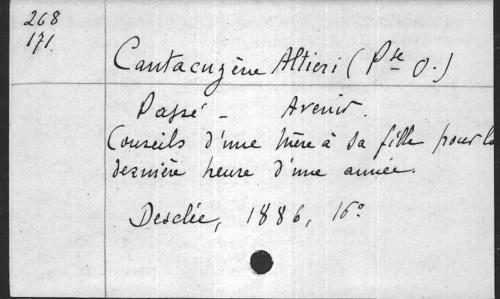 268
171.
Cantacuzène Altieri (Psse O.)
Passé - Avenir.
Conseils d'une Mère à sa fille pour la
dernière heure d'une année.
Desclée, 1886, 16°